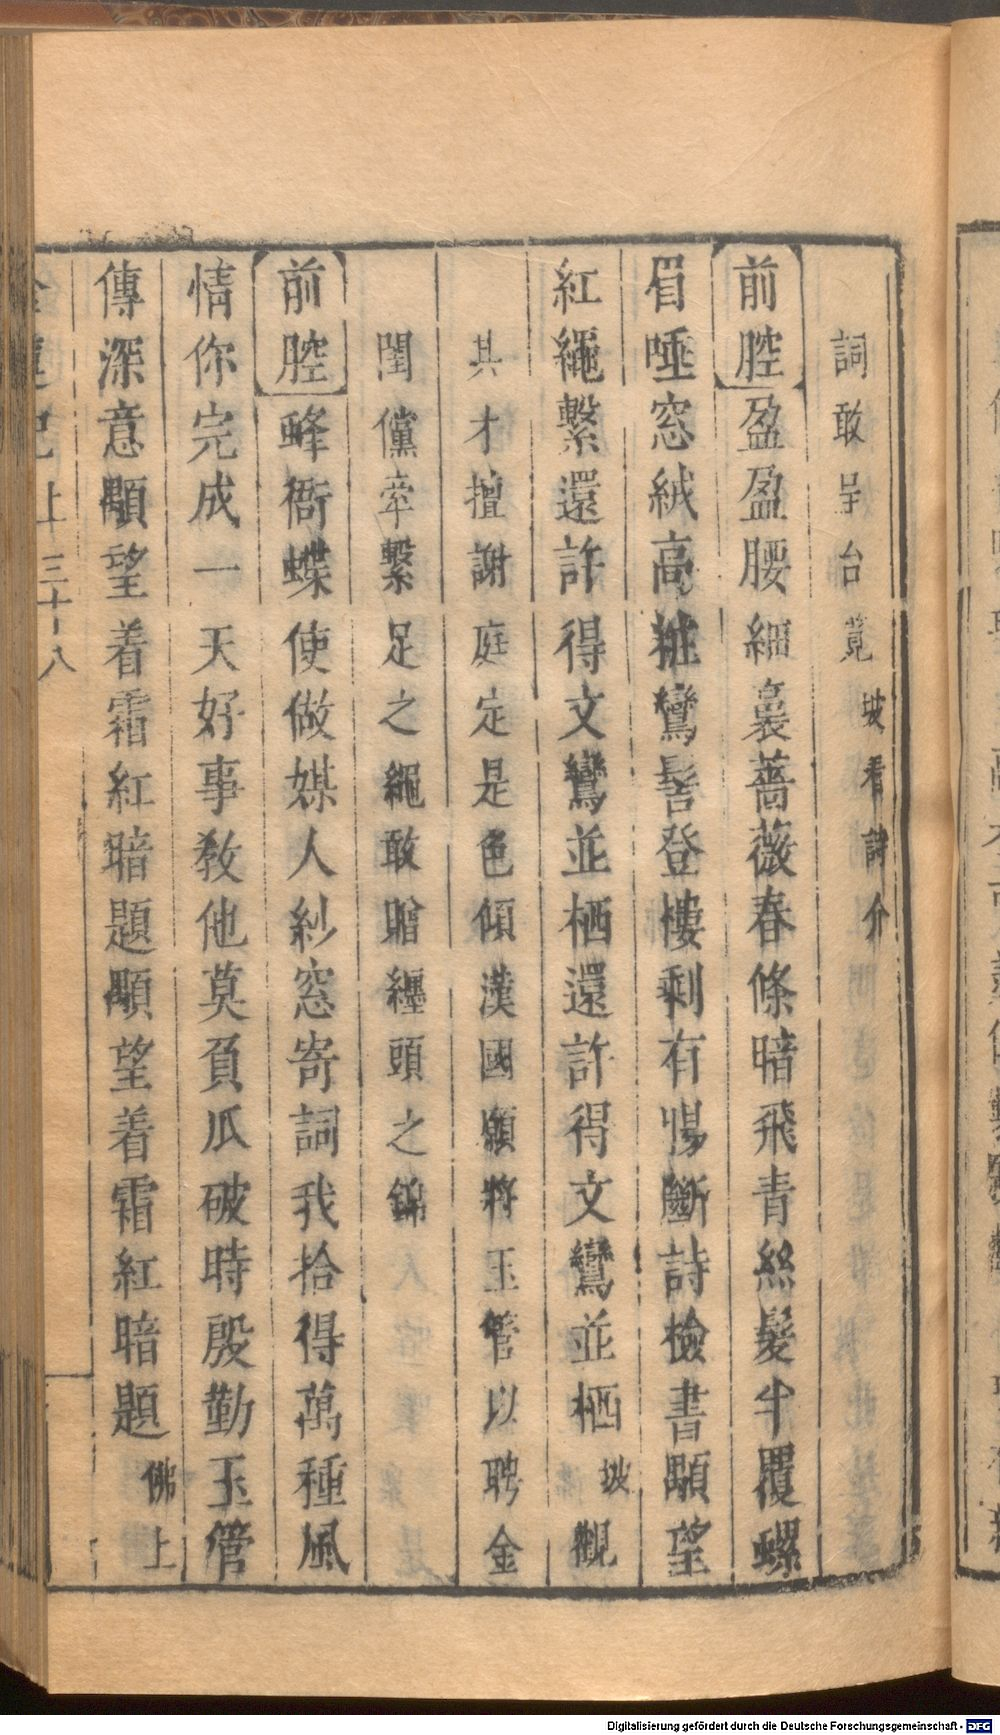 詞敢呈台覧坡看詩介
前腔盈盈腰細裊薔薇春條暗飛青絲髮半覆螺
眉唾窓絨高粧鸞髻登樓剩有腸斷詩檢書顒望
紅繩繫還許得文鸞並栖還許得文鸞並栖坡觀
其才擅謝庭定是色傾漢國願將玉管以聘金
閨儻牽繫足之繩敢贈纒頭之錦
前腔蜂衙蝶使做媒人紗窓寄詞我拾得萬種風
情你完成一天好事教他莫負瓜破時殷勤玉管
傳深意顒望着霜紅暗題顒望着霜紅暗題佛上
記上三十八
Digitalisierung gefördert durch die Deutsche Forschungsgemeinschaft - DFG